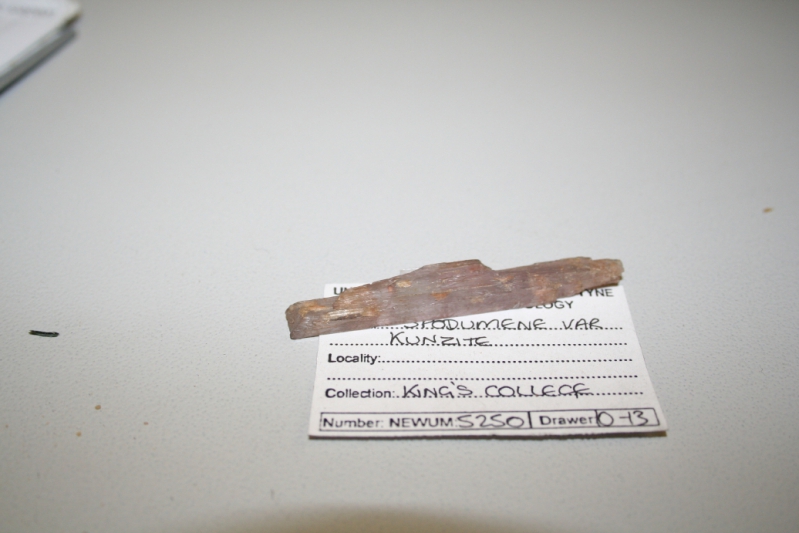 TYNE
SPODUMENE VAR
KUNZITE
Locality:
Collection: KING'S COLLEGE
Number: NEWUM 5250 Drawer 0-13